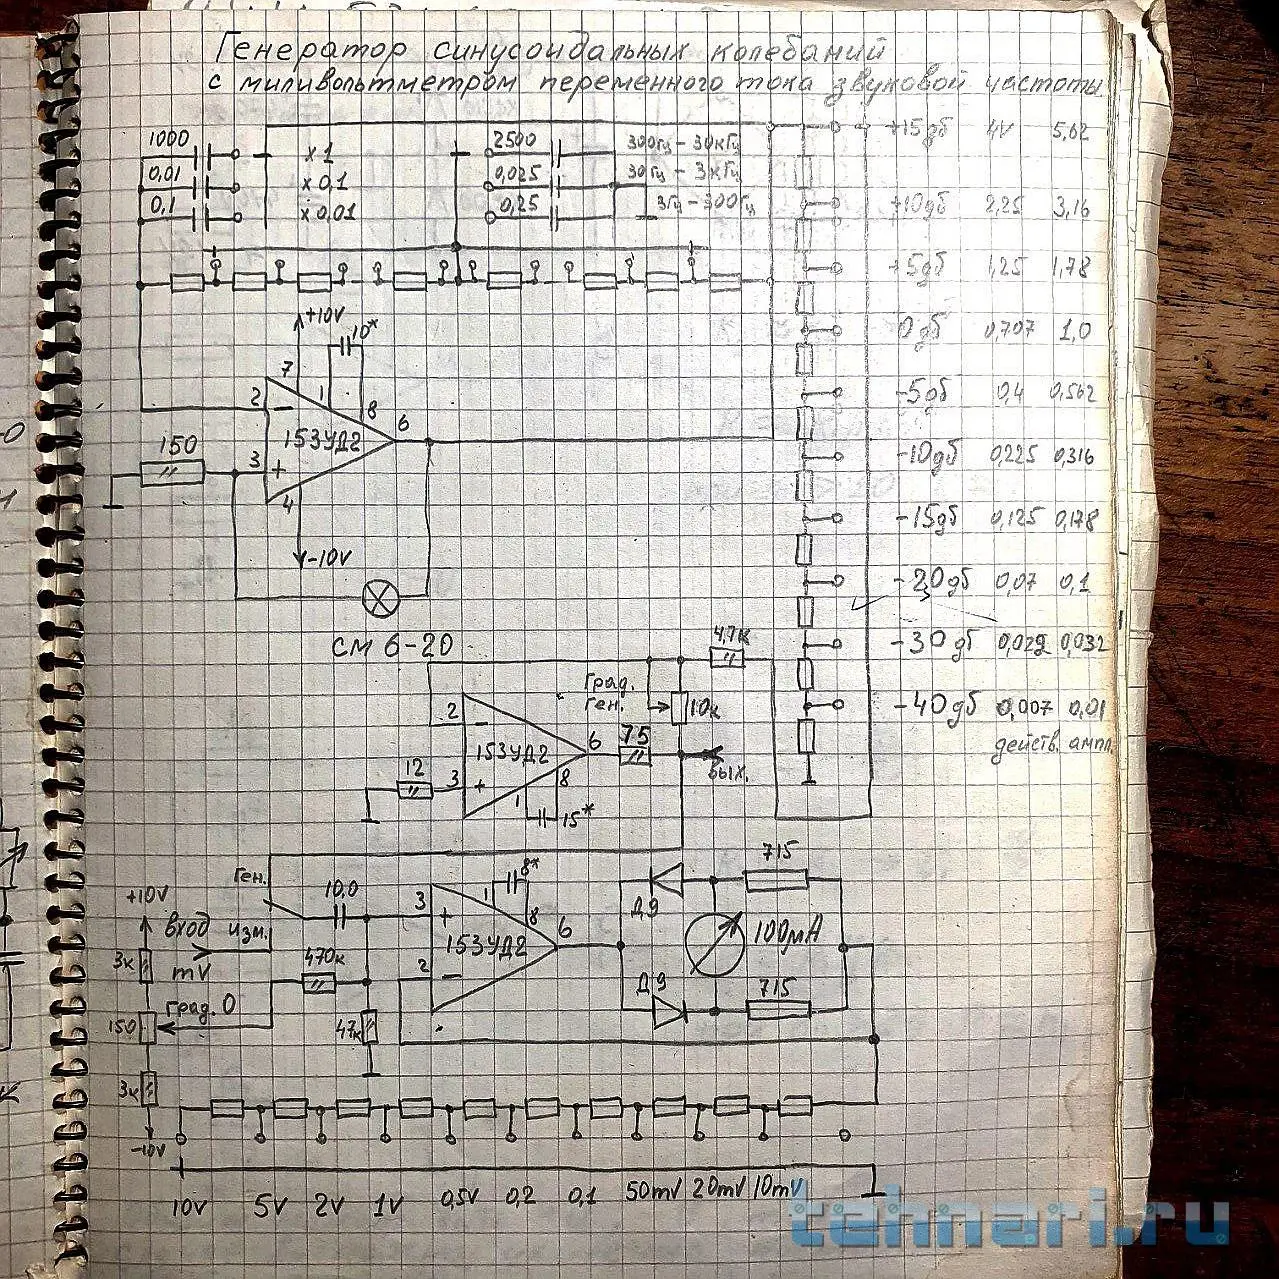 Генератор синусоидальных колебаний
с миливольтметром переменного тока звуковой частоты
1000 x1 2500 300гц-30кГц +15дб 4V 5,62
0,01 x0,1 0,025 30гц-3кГц
0,1 x0,01 0,25 3Гц-300Гц +10дб 2,25 3,16
+5дб 1,25 1,78
+10V 10*
0дб 0,707 1,0
7 1
2 8 6 -5дб 0,4 0,562
150 3 153УД2 -10дб 0,225 0,316
4
-15дб 0,125 0,178
-10V
-20дб 0,07 0,1
см 6-20 4,7к -30дб 0,022 0,032
Град.
Ген. 10к -40дб 0,007 0,01
2 153УД2 6 75 действ. ампл.
12 3 8 Вых.
1 15*
715
Ген. 8*
+10V 10,0 3 1 8 Д9
вход изм. 153УД2 6 100мА
3к mV 470к 2 Д9 715
150 град. 0 47к
3к
-10V
10V 5V 2V 1V 0,5V 0,2 0,1 50mV 20mV 10mV
tehnari.ru